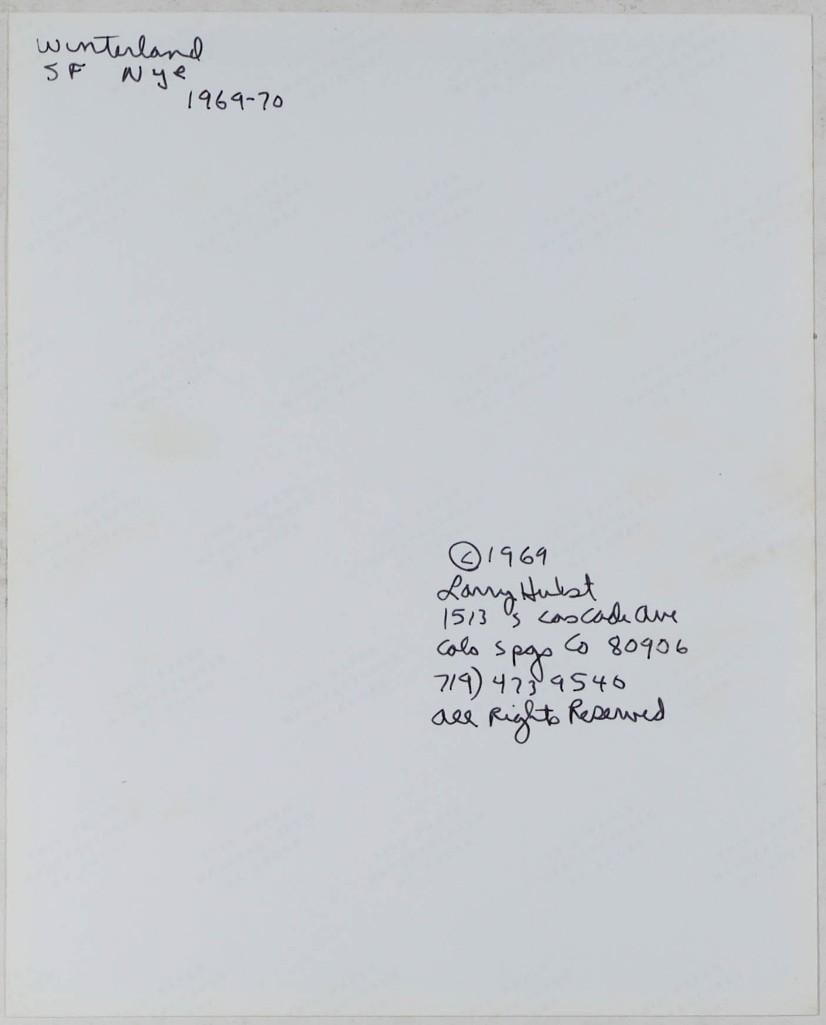 Winterland
SF Nye
1969-70
©1969
Larry Hulst
1513 s cascade Ave
Colo spgs Co 80906
719) 473 9540
All Rights Reserved